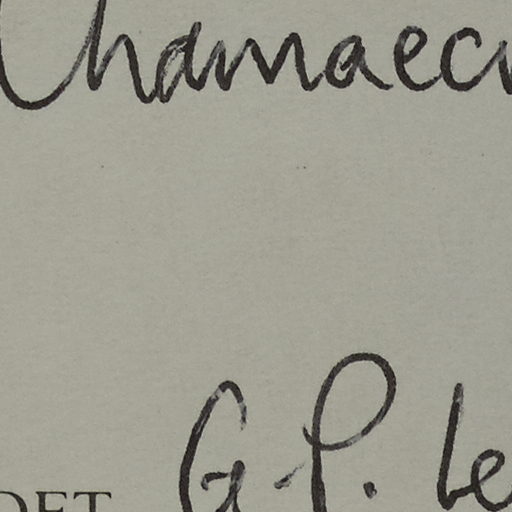 Chamaecr
DET G.P. Le